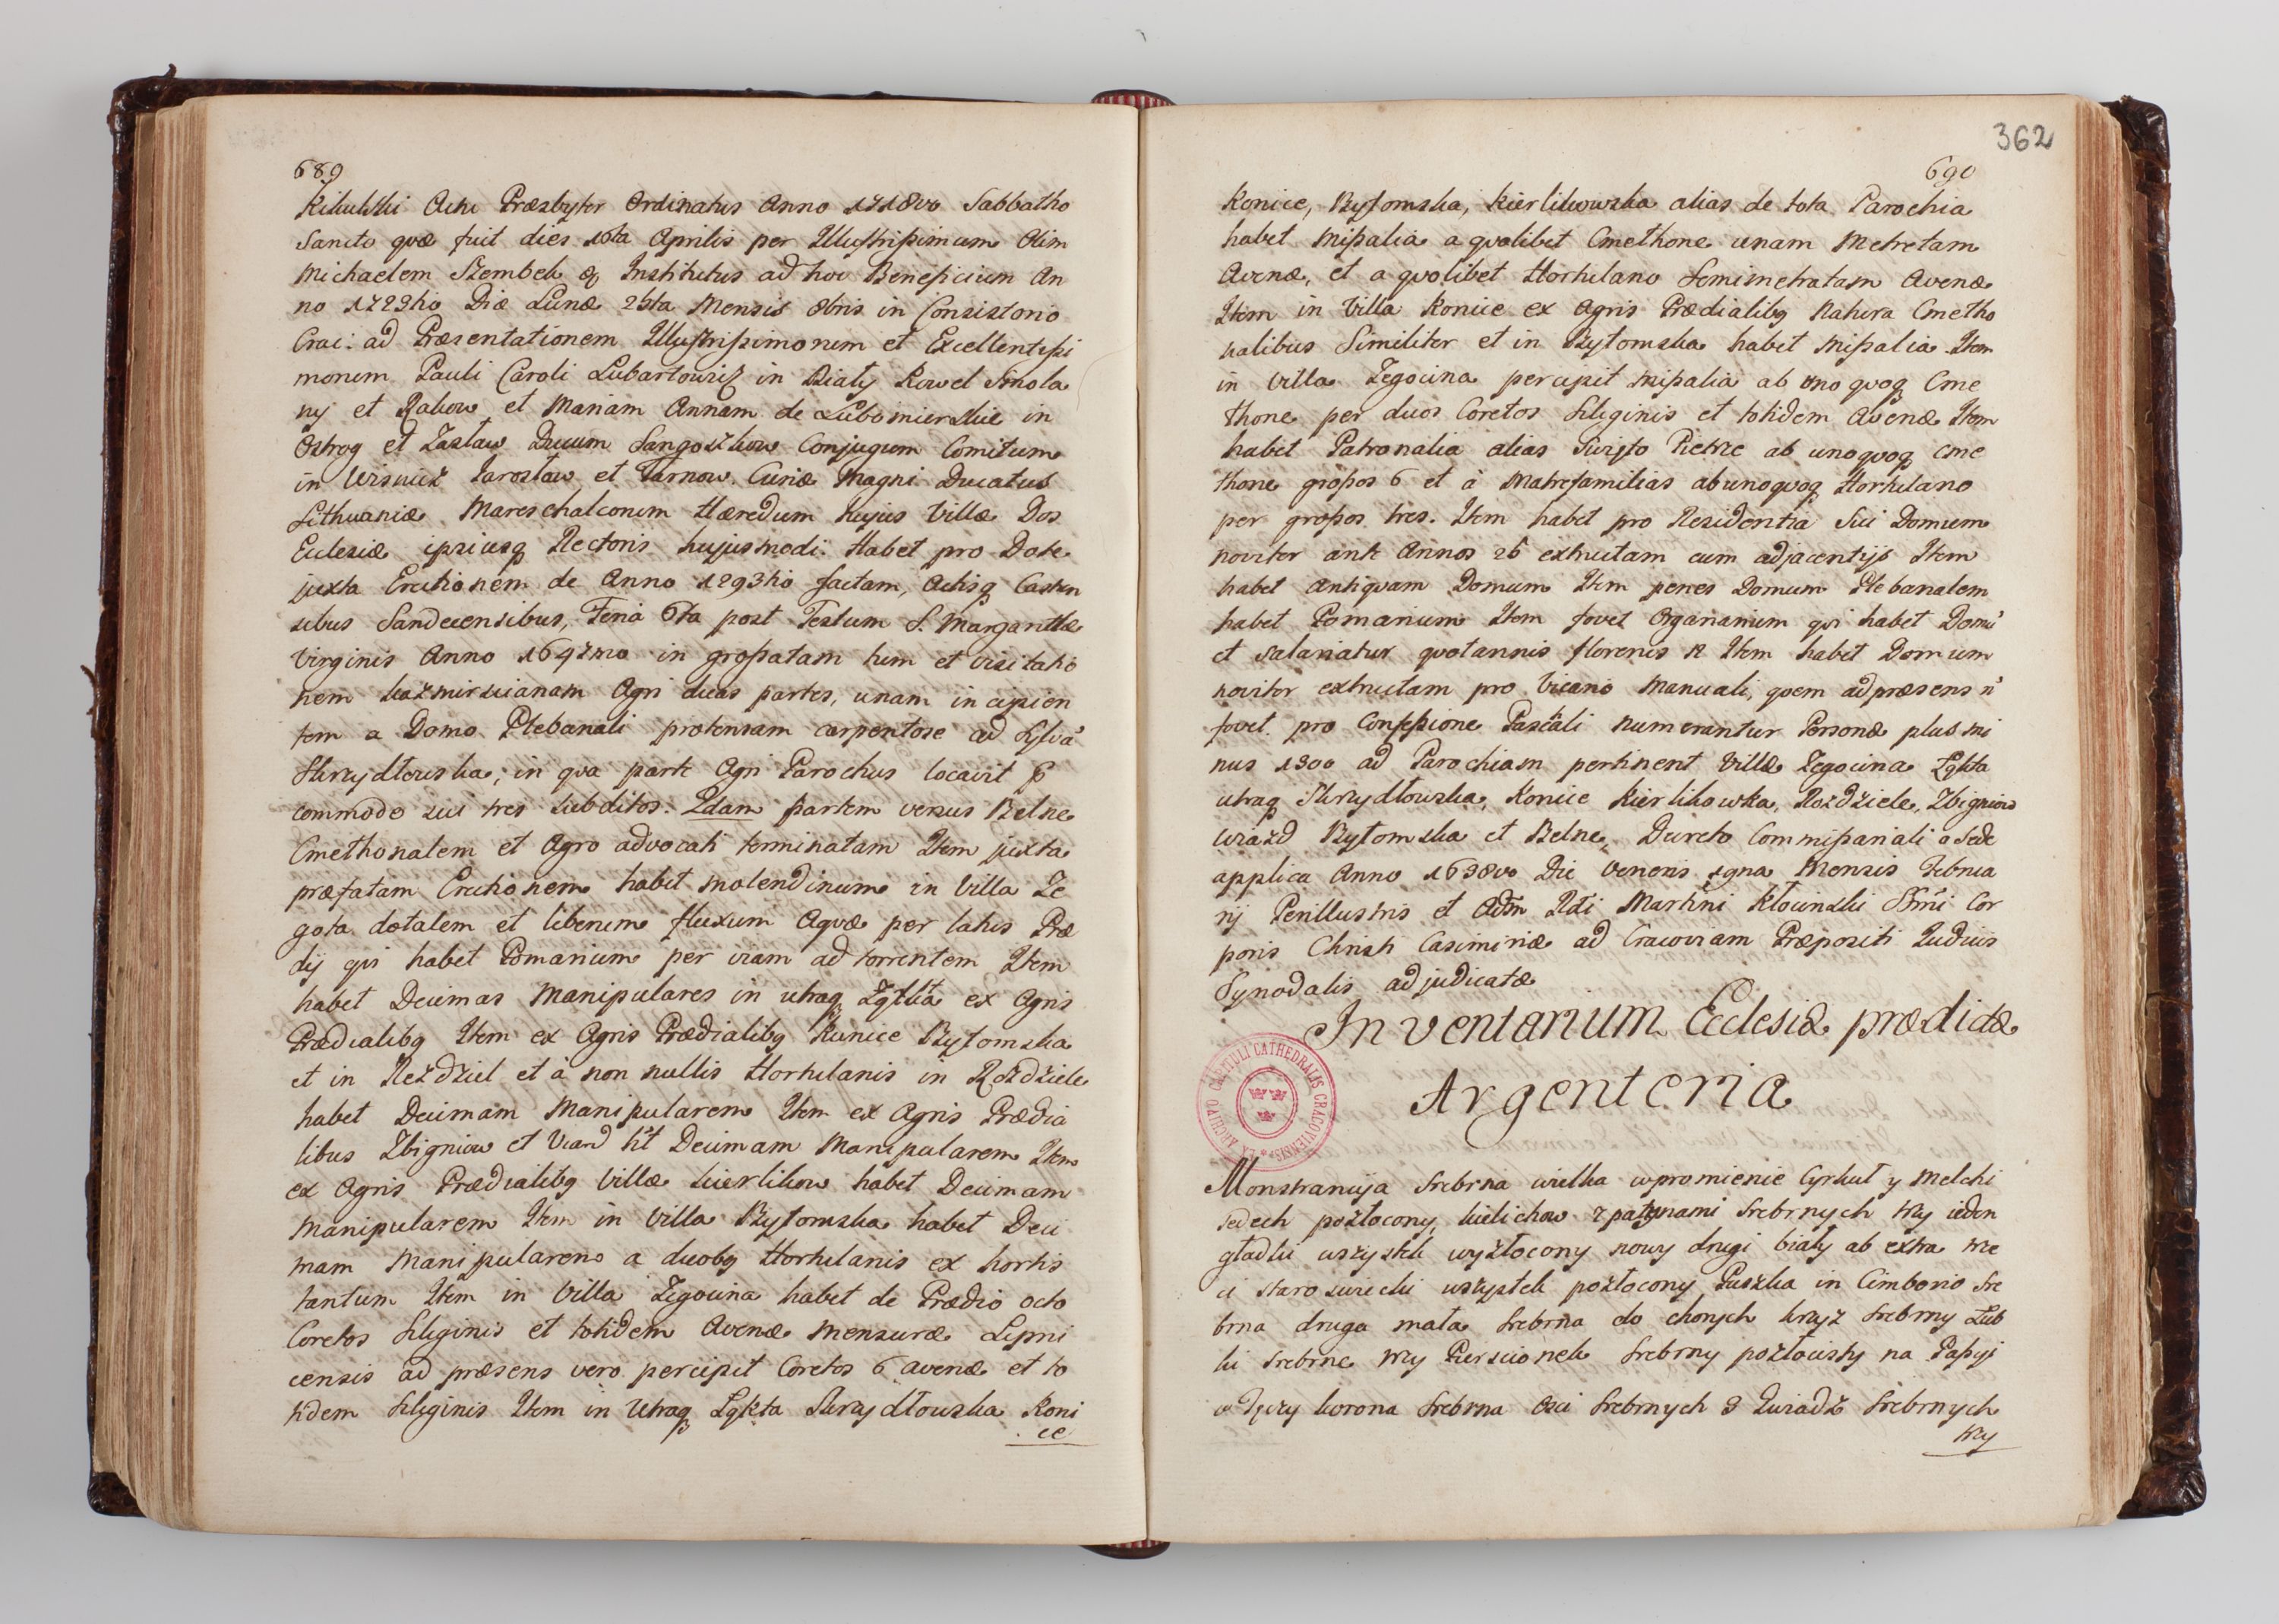 689
Kikulski Actu Præsbyter Ordinatus Anno 1718vo Sabbatho
Sancto qvæ fuit dies 16ta Aprilis per Illustrissimum Olim
Michaelem Szembek & Institutus ad hoc Beneficium An
no 1723tio Die Lunæ Mensis 8bris in Consistorio
Crac: ad Præsentationem Illustrissimorum et Excellentissi
morum Pauli Caroli Lubartowicz in Biały Kowel Smola
ny et Rakow et Mariam Annam de Lubomierskie in
Ostrog et Zasław Ducum Sangoszkow Conjugum Comitum
in Wisnicz Jarosław et Tarnow. Curiæ Magni Ducatus
Lithuaniæ Mareschalcorum Hæredum hujus Villæ Dos
Eclesiæ ipsiusq Rectoris hujusmodi. Habet pro Dote
juxta Erectionem de Anno 1293tio factam, Actisq Castren
sibus Sandecensibus, Feria 6ta post Festum S. Margarithæ
Virginis Anno 1647mo in grossatam tum et visitatio
nem kazmirscianam Agri duas partes, unam incipien
tem a Domo Plebanali protensam ad Sylvã
Skrzydlewska; in qva parte Agri Parochus locavit
commodo sui tres subditos. 2dam partem versus Belne
Cmethonalem et Agro advocati terminatam Item juxta
præfatam Erectionem habet molendinum in Villa Ze
gota dotalem et liberum fluxum Aqvæ per latus Præ
dij qvi habet Pomarium per viam ad torrentem Item
habet Decimas Manipulares in utraq Łąkta ex Agris
Prædialibq Item ex Agris Prædialibq Kunice Bytomska
et in Rezdziel et à non nullis Hortulanis in Rozdziele
habet Decimam Manipularem Item ex Agris Prædia
libus Zbigniow et Viazd ht Decimam Manipularem Item
ex Agris Prædialibq Villæ kierlikow habet Decimam
Manipularem Item in Villa Bytomska habet Deci
mam Manipularem a duobq Hortulanis ex hortis
tantum Item in Villa Zegocina habet de Prædio octo
Coretos Siliginis et totidem Avenæ mensuræ Lipni
censis ad præsens vero percipit Coretos 6 avenæ et to
tidem Siliginis Item in Utraq Łąkta Skrzydlowska Koni
ce
362
690
Konice, Bytomska, Kierlikowska alias de tota Parochia
habet Missalia a qvolibet Cmethone unam Metretam
Avenæ, et a qvolibet Hortulano Semimetratam Avenæ
Item in Villa Konice ex Agris Prædialibq Natura Cmetho
nalibus Similiter et in Bytomska habet Missalia Item
in Villa Zegocina percipit missalia ab uno qvoq Cme
thone per duos Coretos Siliginis et totidem Avenæ Item
habet Patronalia alias Swięto Pietrze ab unoqvoq Cme
thone grossos 6 et à Matrefamilias ab unoqvoq Hortulano
per grossos tres. Item habet pro Residentia Sui Domum
noviter ante Annos 26 extructam cum adjacentijs Item
habet Antiqvam Domum Item penes Domum Plebanalem
habet Pomarium Item fovet Organarium qvi habet Domũ
et salariatur qvotannis florenis 12 Item habet Domum
noviter extructam pro Vicario Manuali, qvem ad præsens ñ
fovet. pro Confessione Paschali numerantur Personæ plus mi
nus 1300 ad Parochiam pertinent Villæ Zegocina Łąkta
utraq Skrzydłowska, Konice Kierlikowka, Rozdziele, Zbigniow
Wiazd Bytomska et Belne, Decreto Commissariali a Sede
applica Anno 1638vo Die Veneris 19na Mensis Februa
rij Perillustris et Adm Rdi Martini Kłocinski SSmi Cor
poris Christi Casimiriæ ad Cracoviam Præpositi Judicis
Synodalis adjudicatæ
Inventarium Ecclesiæ prædictæ
Argenteria
EX ARCHIVO CAPITULI CATHEDRALIS CRACOVIENSIS
Monstrancyja Srebrna wielka w promienie Cyrkuł y Melchi
sedech pozłocony, kielichow z patynami Srebrnych trzy ieden
gładki wszystek wyzłocony nowy drugi biały ab extra trze
ci staroswiecki wszystek pozłocony Puszka in Cimborio Sre
brna druga mała Srebrna do chorych krzyz Srebrny Łub
ki Srebrne trzy Pierscionek Srebrny pozłocisty na Passyi
korona Srebrna Srebrnych 3 Srebrnych
trzy